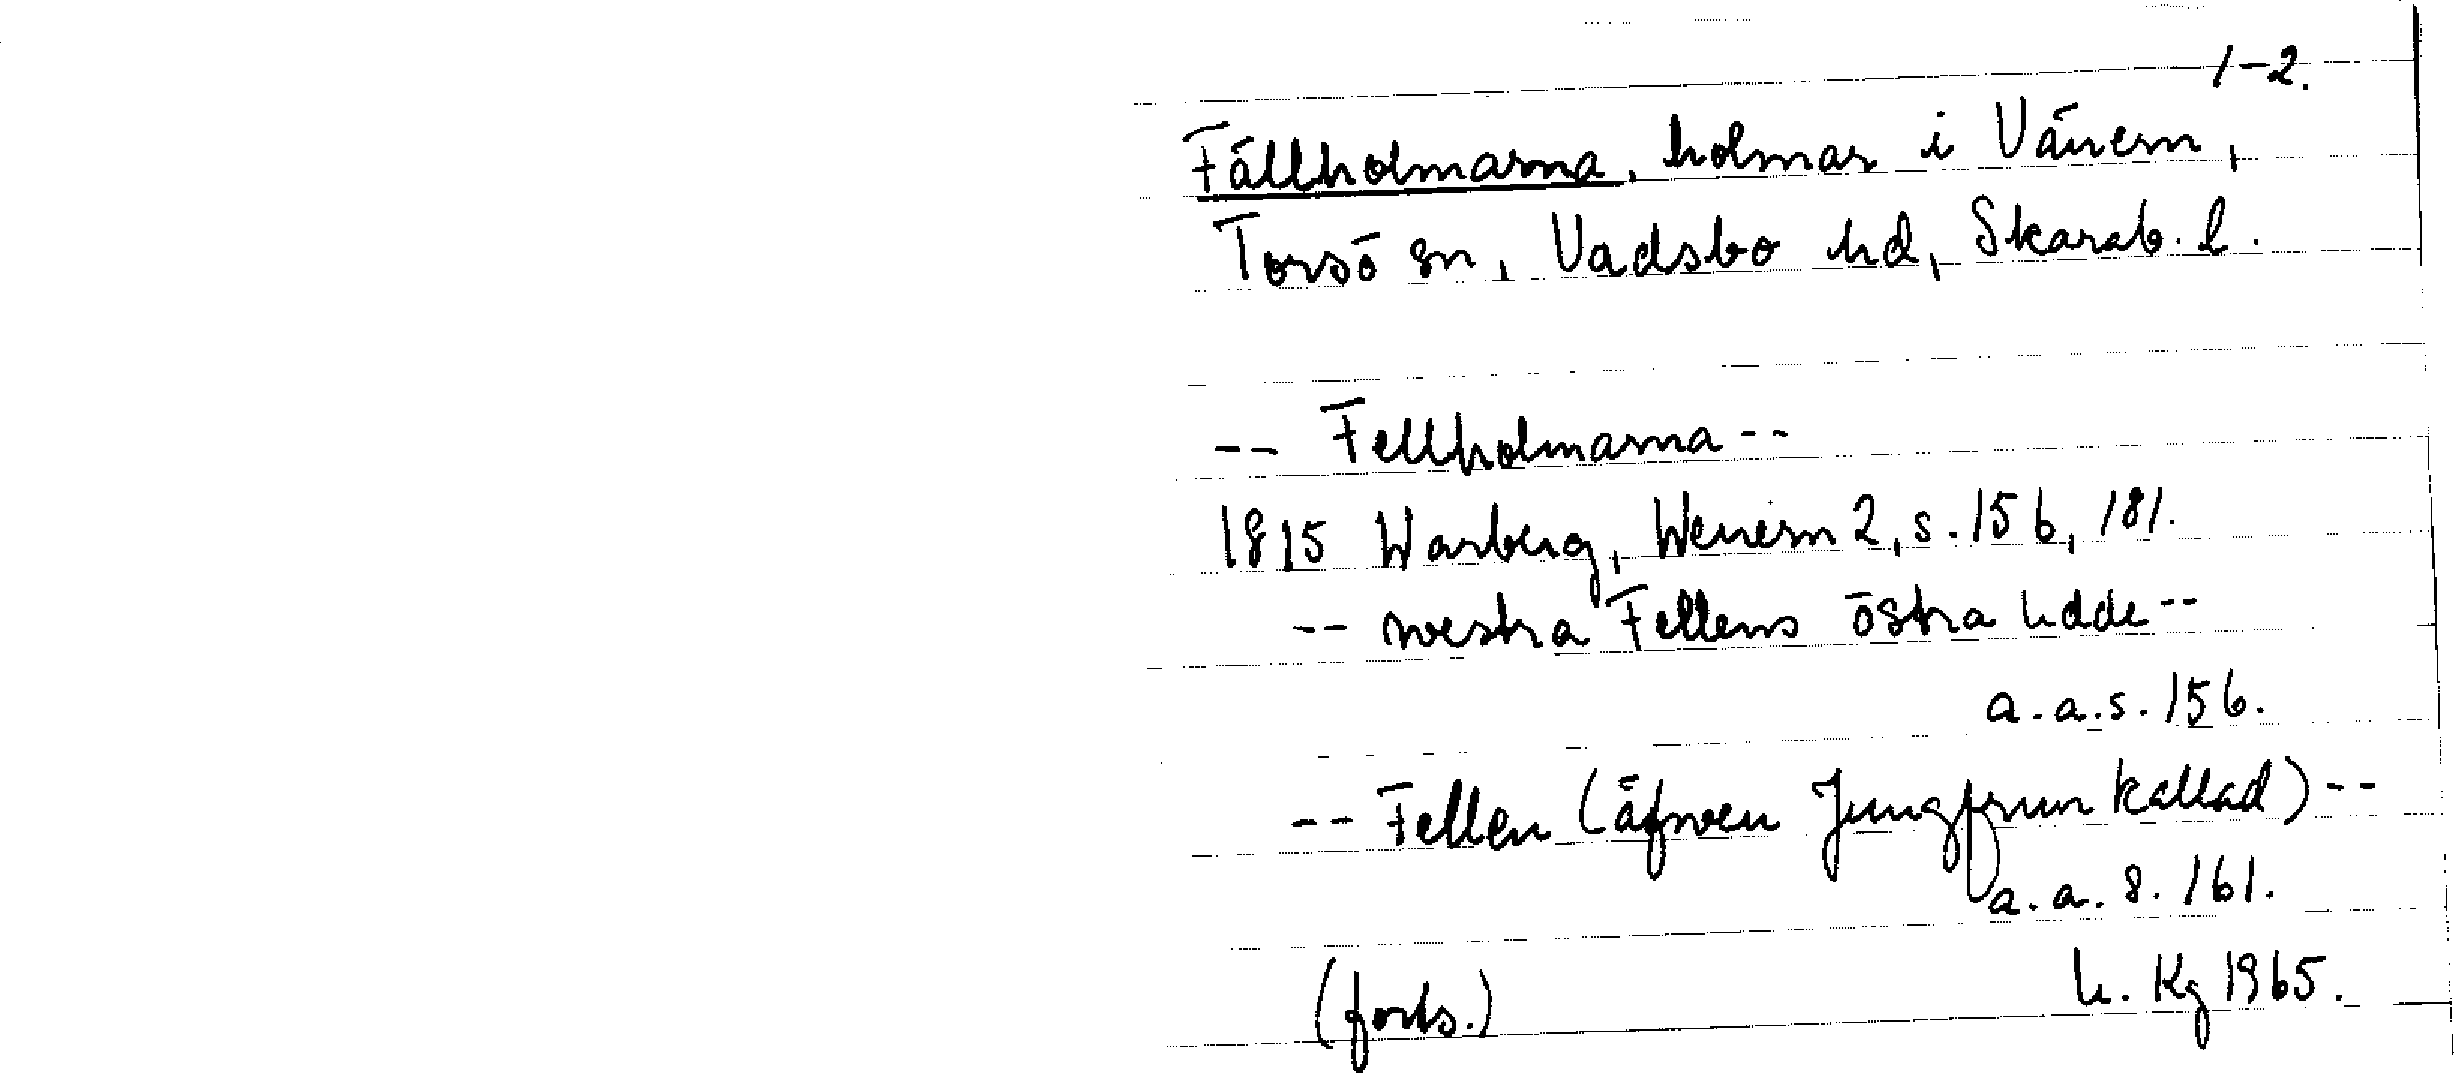 1-2.
Fällholmarna, holmar i Vänern,
Torsö sn, Vadsbo hd, Skarab. l.
-- Fellholmarna --
1815 Warberg, Wenern 2, s. 156, 181.
-- westra Fellens östra udde --
a.a.s. 156.
-- Fellen (äfwen Jungfrun kallad) --
a.a. s. 161.
(forts.) U. Kg 1965.